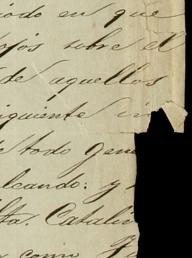 iodo en que
ojos sobre el
de aquellos
iguiente in
de todo gene
lcando: y
lta. Catali
como